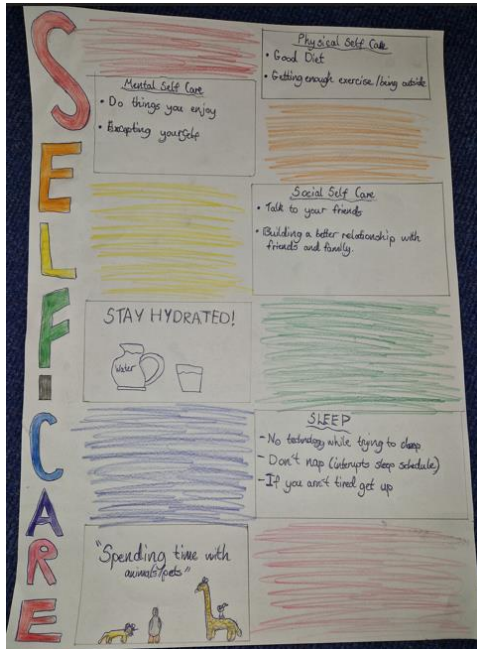 SELF-CARE
Physical Self Care
• Good Diet
• Getting enough exercise/being outside
Mental Self Care
• Do things you enjoy
• Excepting yourself
Social Self Care
• Talk to your friends
• Building a better relationship with
friends and family.
STAY HYDRATED!
Water
SLEEP
- No technology while trying to sleep
- Don't nap (interupts sleep schedule)
- If you aren't tired get up
"Spending time with
animals/pets"